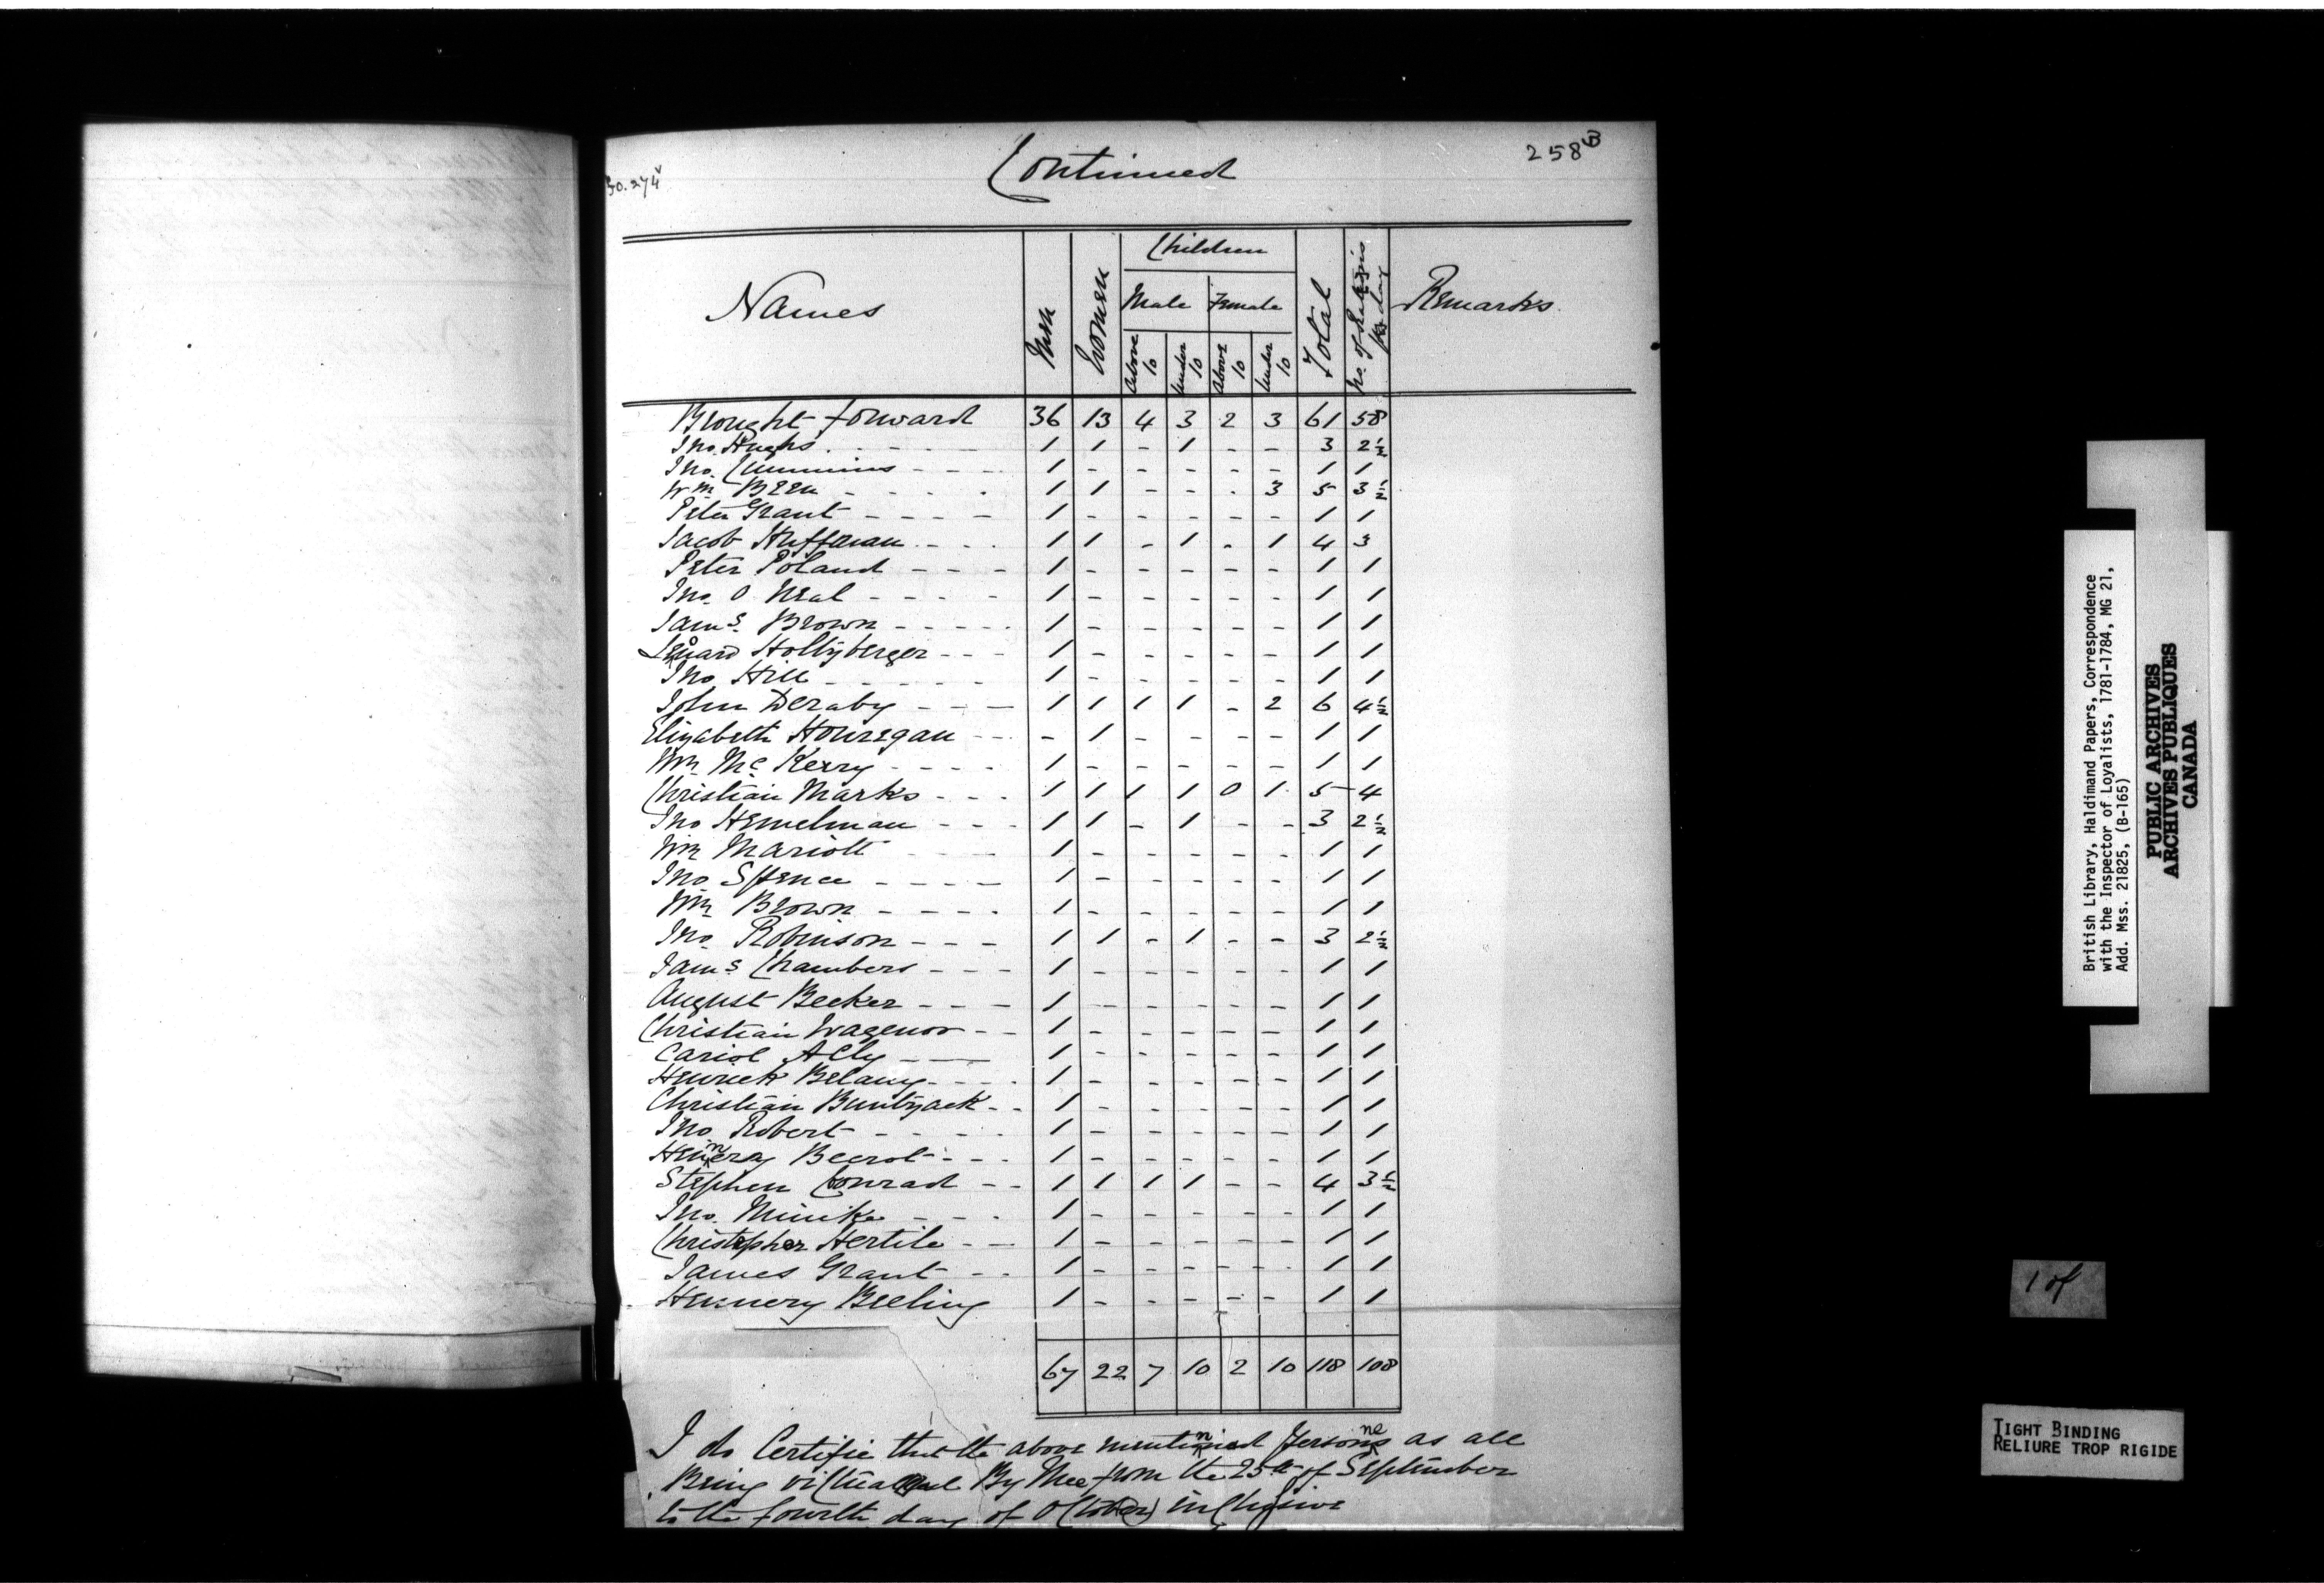 Continued
258 B
Names
Men
Women
Children
Male
Female
Above 10
Under 10
Above 10
Under 10
Total
No. of Rations per day
Remarks
Brought forward 36 13 4 3 2 3 61 58
Jno. Hughs 1 1 - 1 - - 3 2½
Jno. Cummins 1 - - - - - 1 1
Wm Been 1 1 - - - 3 5 3½
Peter Grant 1 - - - - - 1 1
Jacob Huffman 1 1 - 1 - 1 4 3
Peter Poland 1 - - - - - 1 1
Jno. O Neal 1 - - - - - 1 1
Jams. Brown 1 - - - - - 1 1
Leonard Hollyberger 1 - - - - - 1 1
Jno Hill 1 - - - - - 1 1
John Deraby 1 1 1 1 - 2 6 4½
Elizabeth Houregan - 1 - - - - 1 1
Wm Mc Kerry 1 - - - - - 1 1
Christian Marks 1 1 1 1 0 1 5 4
Jno Hemelman 1 1 - 1 - - 3 2½
Wm Mariott 1 - - - - - 1 1
Jno Spence 1 - - - - - 1 1
Wm Brown 1 - - - - - 1 1
Jno. Robinson 1 1 - 1 - - 3 2½
Jams Chambers 1 - - - - - 1 1
August Becker 1 - - - - - 1 1
Christian Wagenor 1 - - - - - 1 1
Cariol Ally 1 - - - - - 1 1
Henrick Belany 1 - - - - - 1 1
Christian Buntyack 1 - - - - - 1 1
Jno Robert 1 - - - - - 1 1
Hennery Beerot 1 - - - - - 1 1
Stephen Conrad 1 1 1 1 - - 4 3½
Jno. Minike 1 - - - - - 1 1
Christepher Hertile 1 - - - - - 1 1
James Grant 1 - - - - - 1 1
Hennery Beeling 1 - - - - - 1 1
67 22 7 10 2 10 118 108
I do Certifie that the above mentinned Persons as all
Being By Mee from the 25th of September
to the fourth day of October inclusive
British Library, Haldimand Papers, Correspondence
with the Inspector of Loyalists, 1781-1784, MG 21,
Add. Mss. 21825, (B-165)
PUBLIC ARCHIVES
ARCHIVES PUBLIQUES
CANADA
1 of
TIGHT BINDING
RELIURE TROP RIGIDE